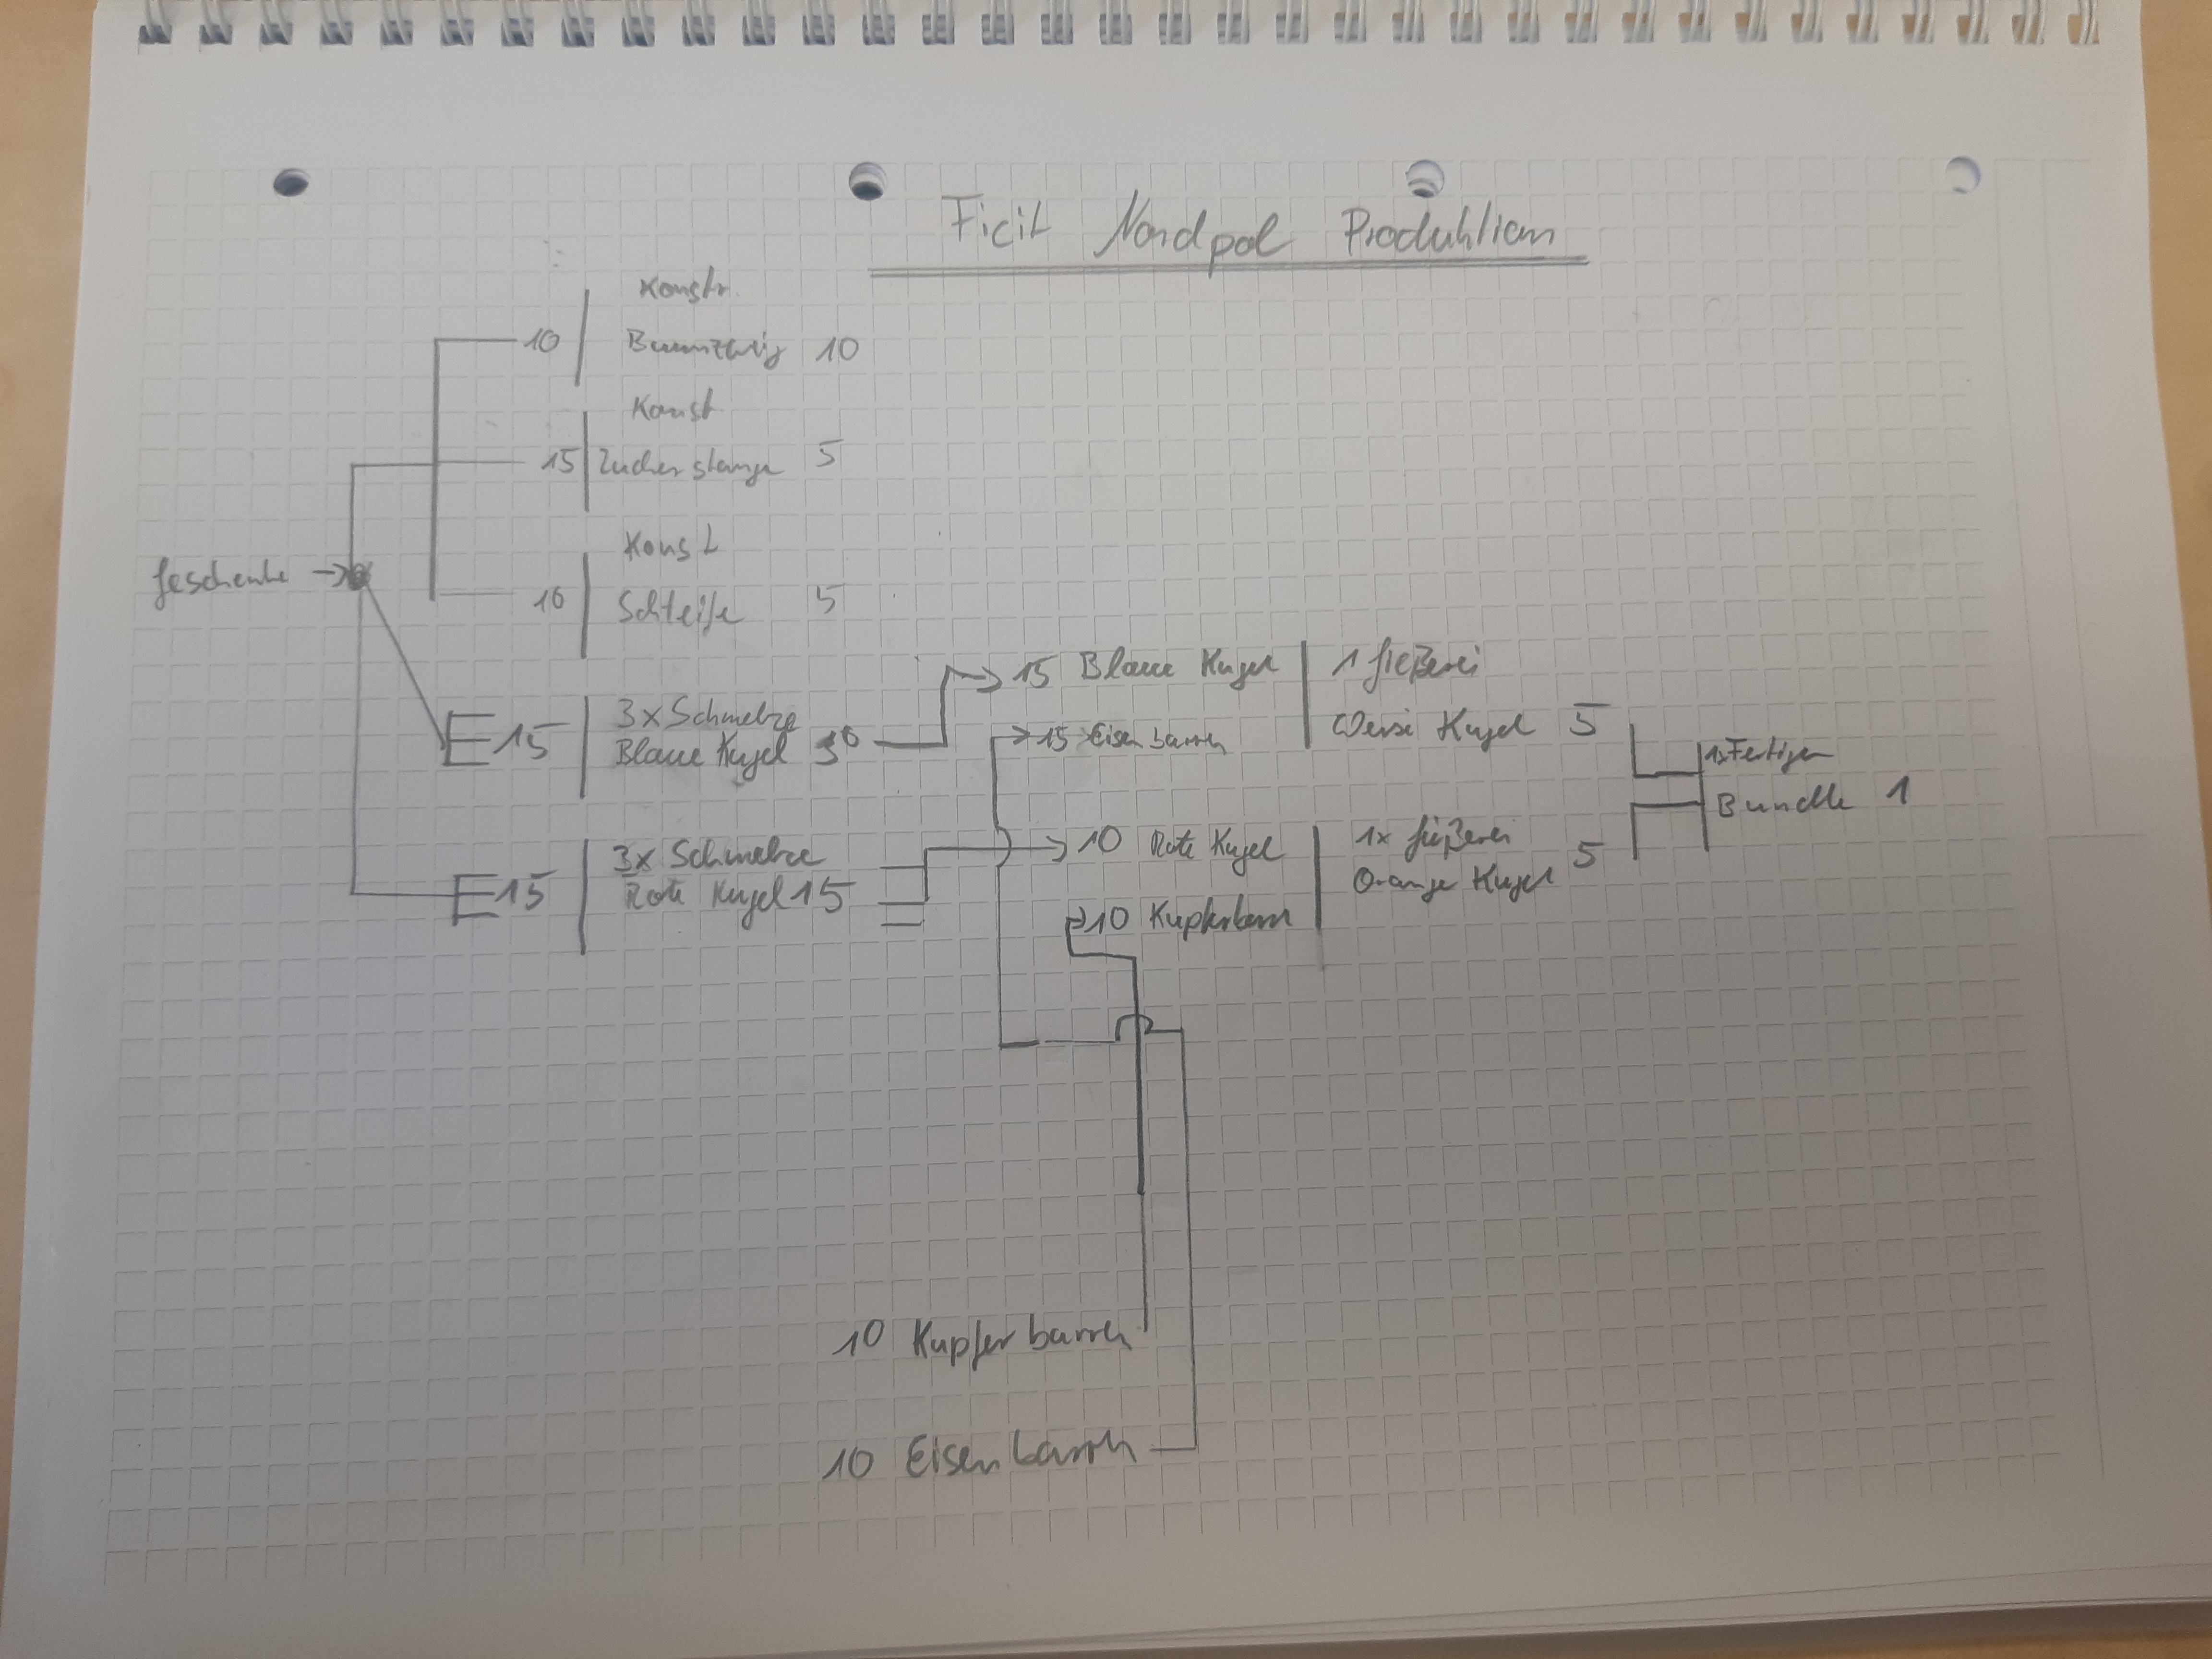 Ficit Nordpol Produktion
Konstr.
10 Baumzweig 10
Konst
15 Zuckerstange 5
Konst
10 Schleife 5
Geschenke
15 3x Schmelze
Blaue Kugel 30
15 3x Schmelze
Rote Kugel 15
15 Blaue Kugel
15 Eisenbarren
1 Gießerei
Weise Kugel 5
10 Rote Kugel
10 Kupferbarren
1x Gießerei
Orange Kugel 5
1x Fertiger
Bundle 1
10 Kupferbarren
10 Eisenbarren